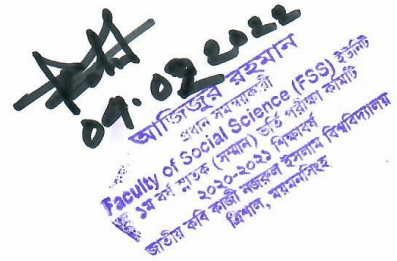 09.02.2022
আজিজুর রহমান
প্রধান সমন্বয়কারী
Faculty of Social Science (FSS) ইউনিট
১ম বর্ষ স্নাতক (সম্মান) ভর্তি পরীক্ষা কমিটি
২০২০-২০২১ শিক্ষাবর্ষ
জাতীয় কবি কাজী নজরুল ইসলাম বিশ্ববিদ্যালয়
ত্রিশাল, ময়মনসিংহ